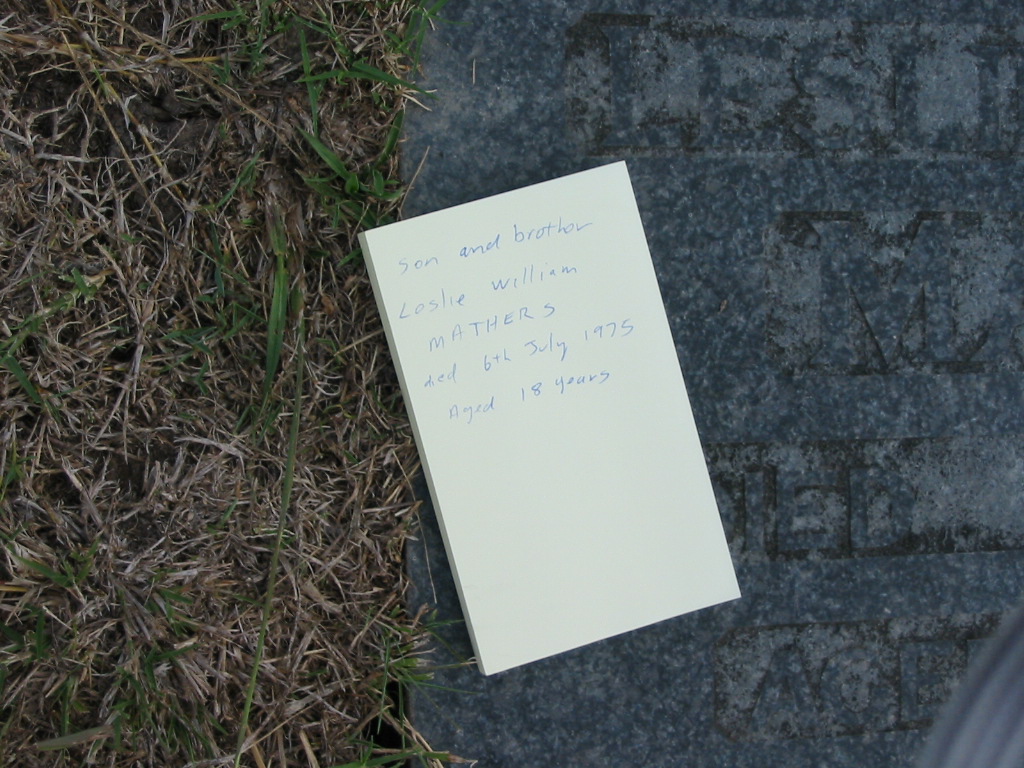 Son and brother
Leslie William
MATHERS
died 6th July 1975
Aged 18 years
LESLI
M
IED
AGE